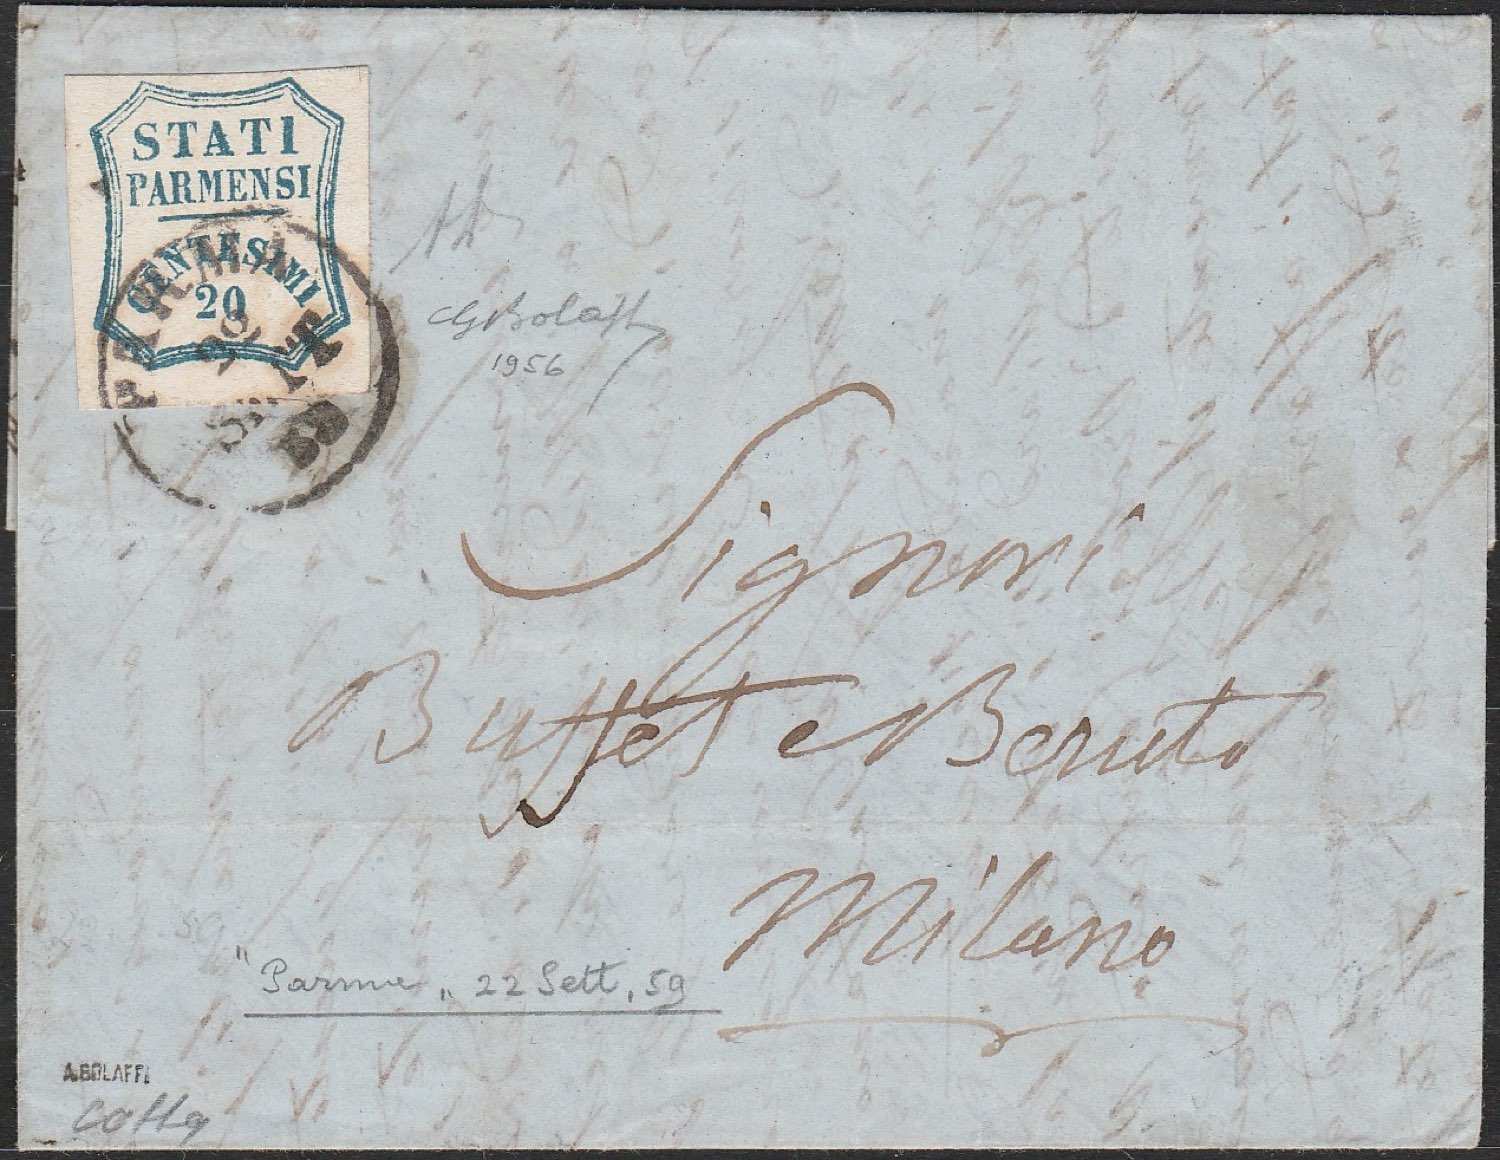 STATI
PARMENSI
CENTESIMI
20
PARMA
SETT
59
GBolaffi
1956
Signori
Buffet e Beruto
Milano
"Parma„ 22 Sett, 59
A.BOLAFFI